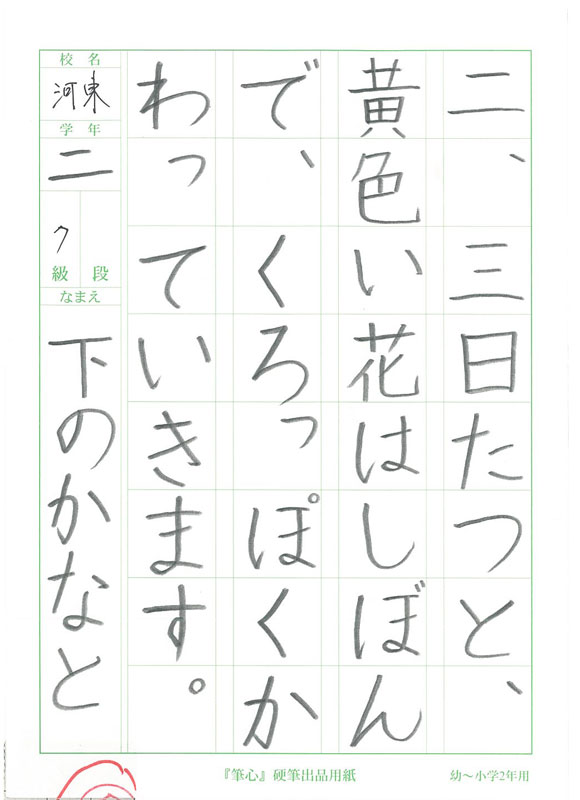 二、三日たつと、
黄色い花はしぼん
で、くろっぽくか
わっていきます。
校名
河東
学年
二
級 段
7
なまえ
下のかなと
『筆心』硬筆出品用紙
幼～小学2年用